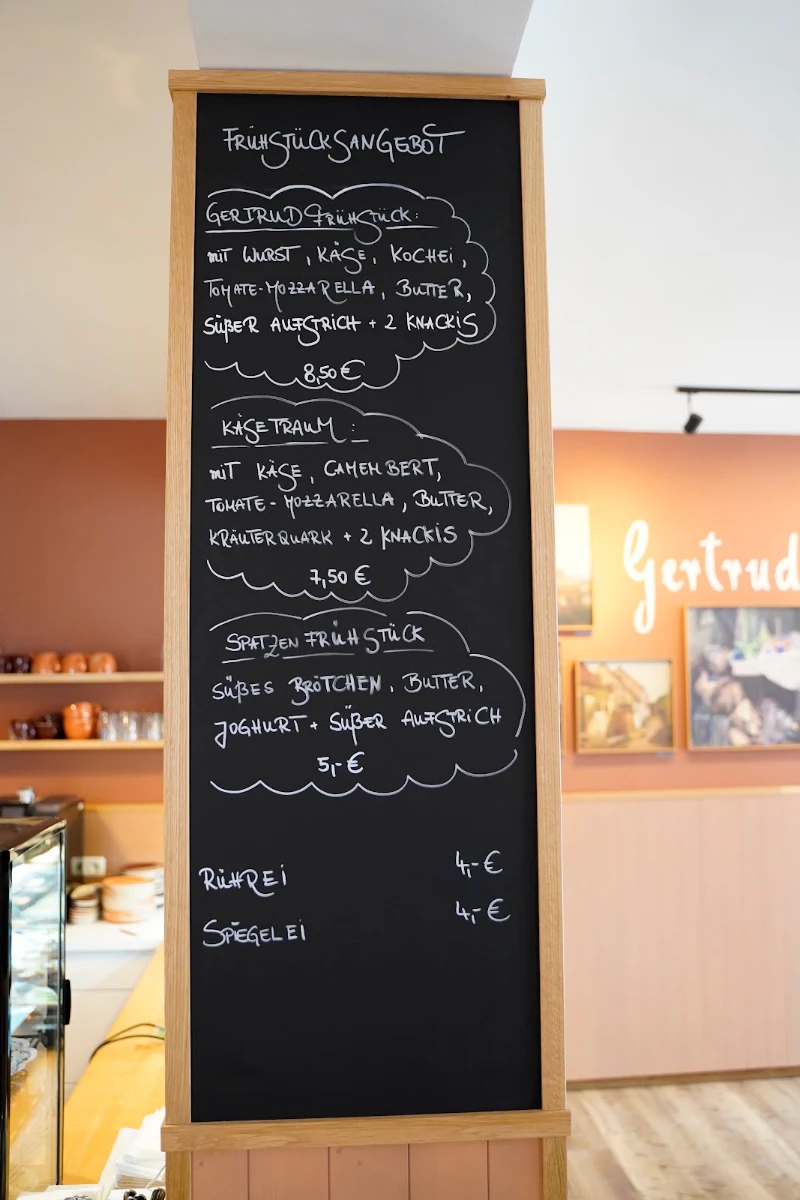 FRÜHSTÜCKSANGEBOT
GERTRUD FRÜHSTÜCK:
MIT WURST, KÄSE, KOCHEI,
TOMATE-MOZZARELLA, BUTTER,
SÜßER AUFSTRICH + 2 KNACKIS
8,50 €
KÄSETRAUM:
MIT KÄSE, CAMEMBERT,
TOMATE-MOZZARELLA, BUTTER,
KRÄUTERQUARK + 2 KNACKIS
7,50 €
SPATZEN FRÜHSTÜCK
SÜßES BRÖTCHEN, BUTTER,
JOGHURT + SÜßER AUFSTRICH
5,- €
RÜHREI 4,- €
SPIEGELEI 4,- €
Gertrud